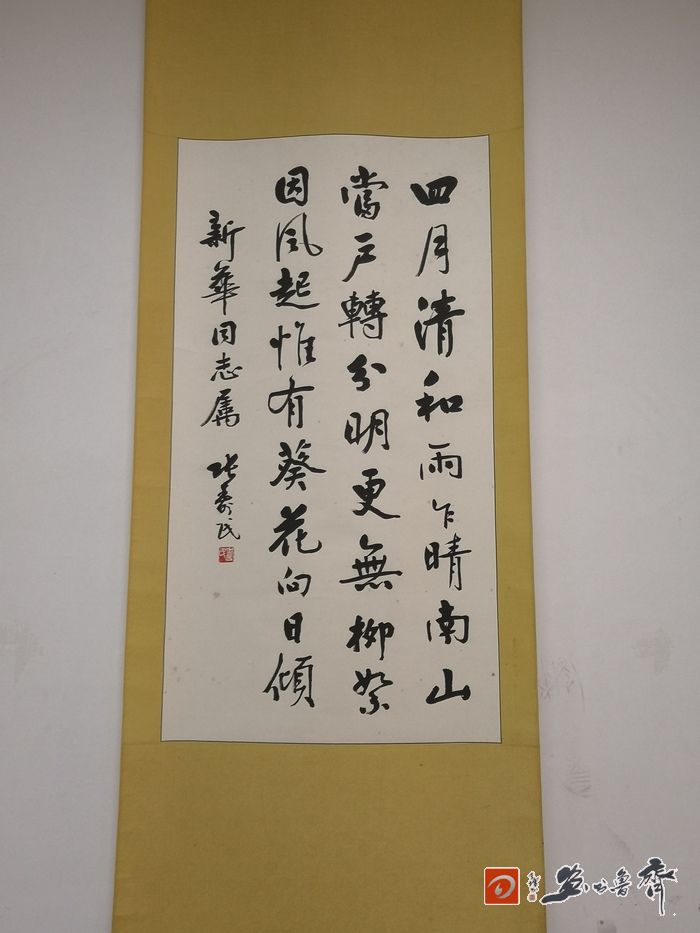 四月清和雨乍晴南山
當戶轉分明更無柳絮
因風起惟有葵花向日傾
新華同志属
张壽民
齐鲁书画